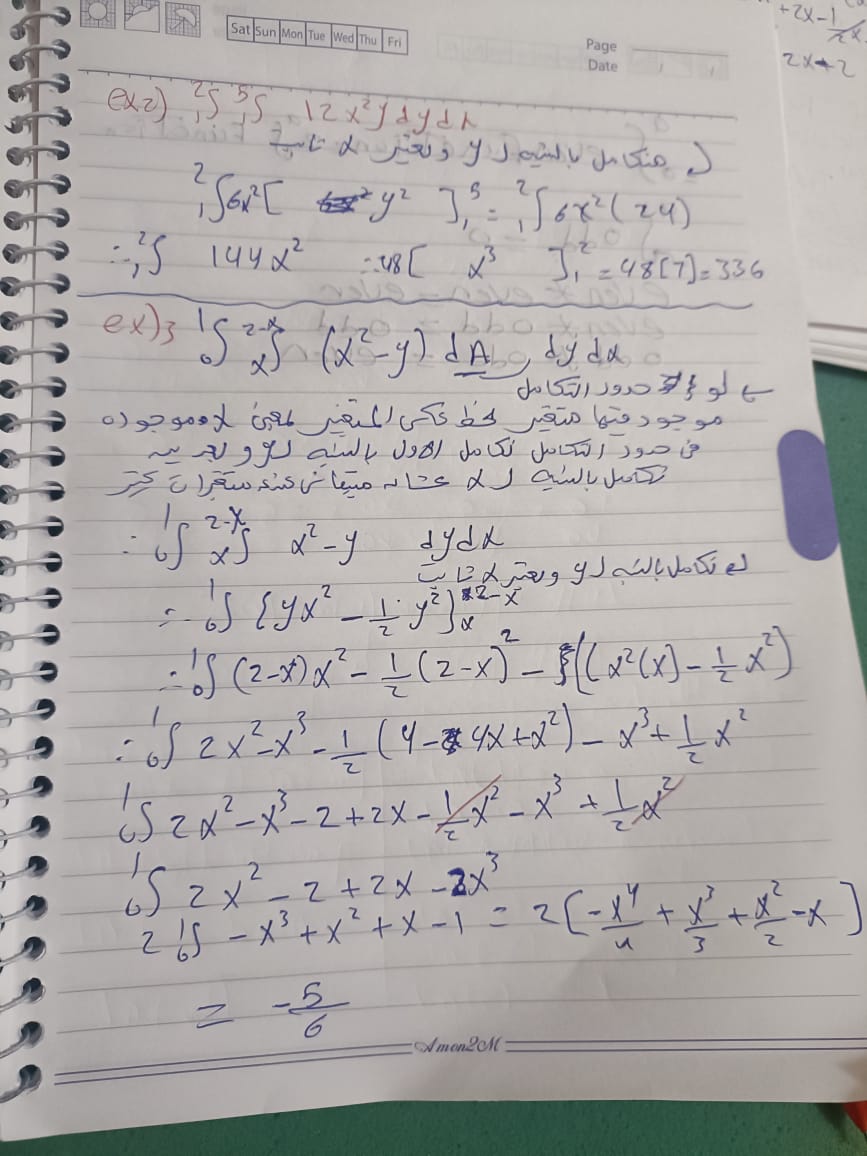 +2x-1/2x
2x+2
Sat Sun Mon Tue Wed Thu Fri
Page
Date
ex2) ₁²∫ ₁⁵∫ 12x²y dy dx
نتكامل بالنسبه ل y ونعتبر x ثابت
₁²∫6x²[ y² ]₁⁵ = ₁²∫ 6x²(24)
∴ ₁²∫ 144x² ∴ 48[ x³ ]₁² = 48[7] = 336
ex)3 ₀¹∫ ₓ²⁻ˣ∫ (x²-y) dA, dy dx
لو حدود التكامل
موجود فيها متغير المتغير x موجوده
فى حدود التكامل نكامل الاول بالنسبه ل y و بعدين
نكامل بالنسبه ل x عشان
∴ ₀¹∫ ₓ²⁻ˣ∫ x²-y dy dx
نكامل بالنسبه ل y ونعتبر x ثابت
= ₀¹∫ {yx² - 1/2 y²}ₓ²⁻ˣ
∴ ₀¹∫ (2-x)x² - 1/2 (2-x)² - ((x²(x) - 1/2 x²)
∴ ₀¹∫ 2x²-x³ - 1/2 (4 - 4x+x²) - x³ + 1/2 x²
₀¹∫ 2x²-x³-2+2x-1/2x²-x³+1/2x²
₀¹∫ 2x²-2+2x-2x³
2 ₀¹∫ -x³+x²+x-1 = 2[-x⁴/4 + x³/3 + x²/2 - x]
= -5/6
Amon2M